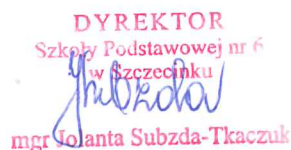 DYREKTOR
Szkoły Podstawowej nr 6
w Szczecinku
mgr Jolanta Subzda-Tkaczuk